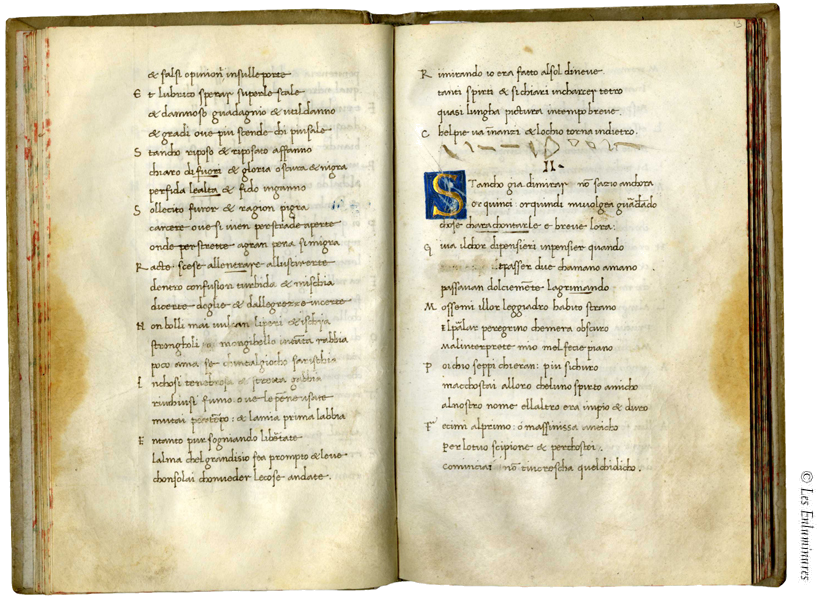 & falsi opinioni insulle porte
E t lubrico sperar su per le scale
& dannoso guadagnio & util danno
& gradi ove piu scende chi piu sale
S tancho riposo & riposato affanno
chiaro di fuori & gloria oscura & nigra
perfida lealta & fido inganno
S ollecito furor & ragion pigra
carcere ove si vien per strade aperte
onde per strette a gran pena si migra
R acte scese allentrare allusir erte
dentro confusion turbida & mischia
di certe doglie & dallegrezze incerte
N on bolli mai vulcan lipari & ischia
strongholi & mongibello in tanta rabbia
poco ama se
I nchosi tenebrosa & strecta gabbia
rinchiusi fumo ove le pene usate
mutai & la mia prima labbia
E ntanto pur sogniando libertate
lalma chel gran disio fea prompto & leve
chonsolai chon veder le cose andate.
13
R imirando io era fatto al sol di neve
tanti spirti & si chiari in charcer tetro
quasi lungha pictura in tempo breve.
C hel pie va inanzi & lochio torna indietro.
II.
S Tancho gia di mirar non sazio anchora
or quinci or quindi mi volgea guardado
chose charachontarle e breve lora:
G iva il chor di pensieri in pensier quando
tpasser due cha mano a mano
passavan dolcemente lagrimando
M ossemi il lor leggiadro habito strano
El parlar peregrino che mera obscuro
Ma linterprete mio mel fecie piano
P oi chio seppi chi eran: piu sichuro
macchostai alloro che luno spirto amicho
al nostro nome ellaltro era impio & duro
F ecimi al primo: o massinissa anticho
Per lo tuo scipione & per chostei.
cominciai non ti increscha quel chi dicho.
© Les Enluminures